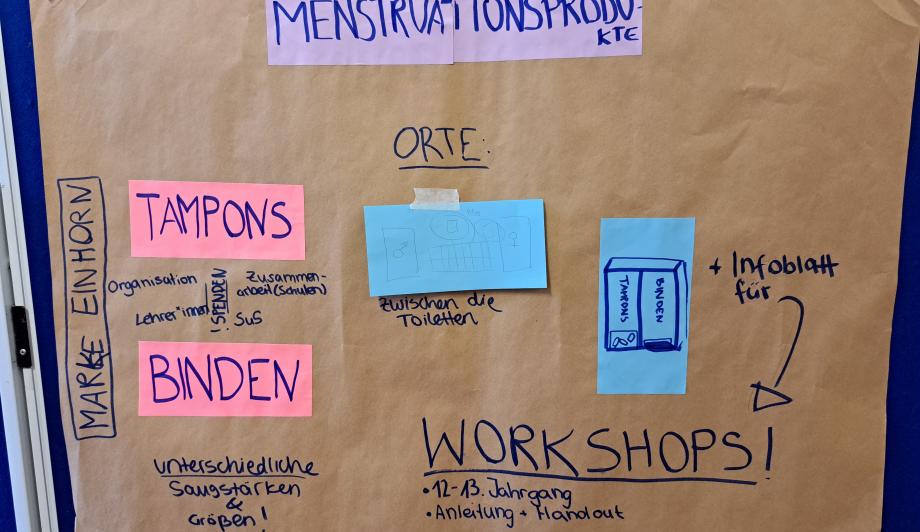 MENSTRUATIONSPRODU-
KTE
ORTE:
MARKE EINHORN
TAMPONS
Organisation
Lehrer*innen
! SPENDEN !
Zusammen-
arbeit (Schulen)
SuS
BINDEN
unterschiedliche
Saugstärken
&
Größen!
zwischen die
Toiletten
TAMPONS
BINDEN
+ Infoblatt
für
WORKSHOPS!
• 12-13. Jahrgang
• Anleitung + Handout